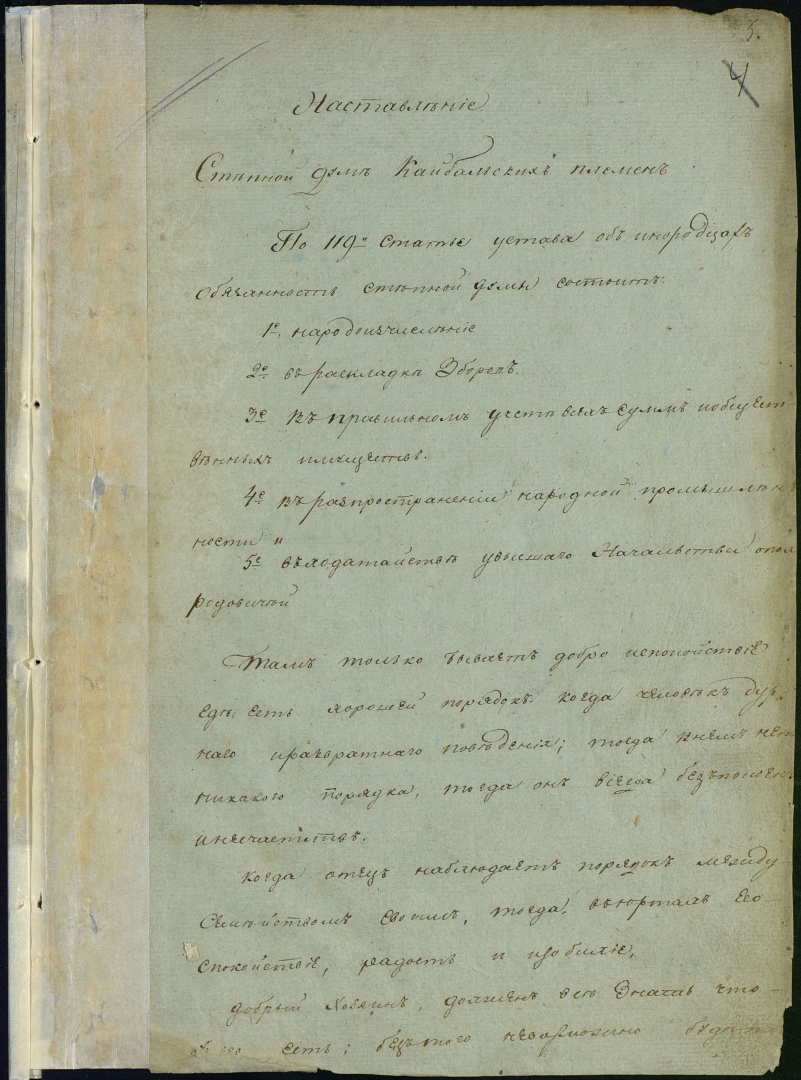 3.
4
Наставлѣніе
Стѣпной думѣ Кайбальскихъ племенъ
По 119й статьѣ устава объ инородцахъ
Обязанность стѣпной думы состоитъ:
1е, народоизчислѣніе
2е въ раскладкѣ Зборовъ.
3е въ правильномъ учетѣ всѣхъ суммъ иобщест-
вѣнныхъ имуществъ.
4е въ разпространеніи народной промышлѣн
ности "
5е въходатайствѣ увысшаго Начальства опол
родовичей
Тамъ только бываетъ добро испокойствіе
гдѣ есть хорошей порядокъ. когда человѣкъ дур-
наго иразвратнаго поведенія; тогда внемъ нет
никакого порядка, тогда онъ всегда безъпокоен
инесчастивъ.
Когда отецъ наблюдаетъ порядокъ между
Семѣйствомъ своимъ, тогда, въюртахъ его
спокойствіе, радость и изобиліе,
добрый Хозяинъ, долженъ всю Знать что
его есть; безътого невозможно